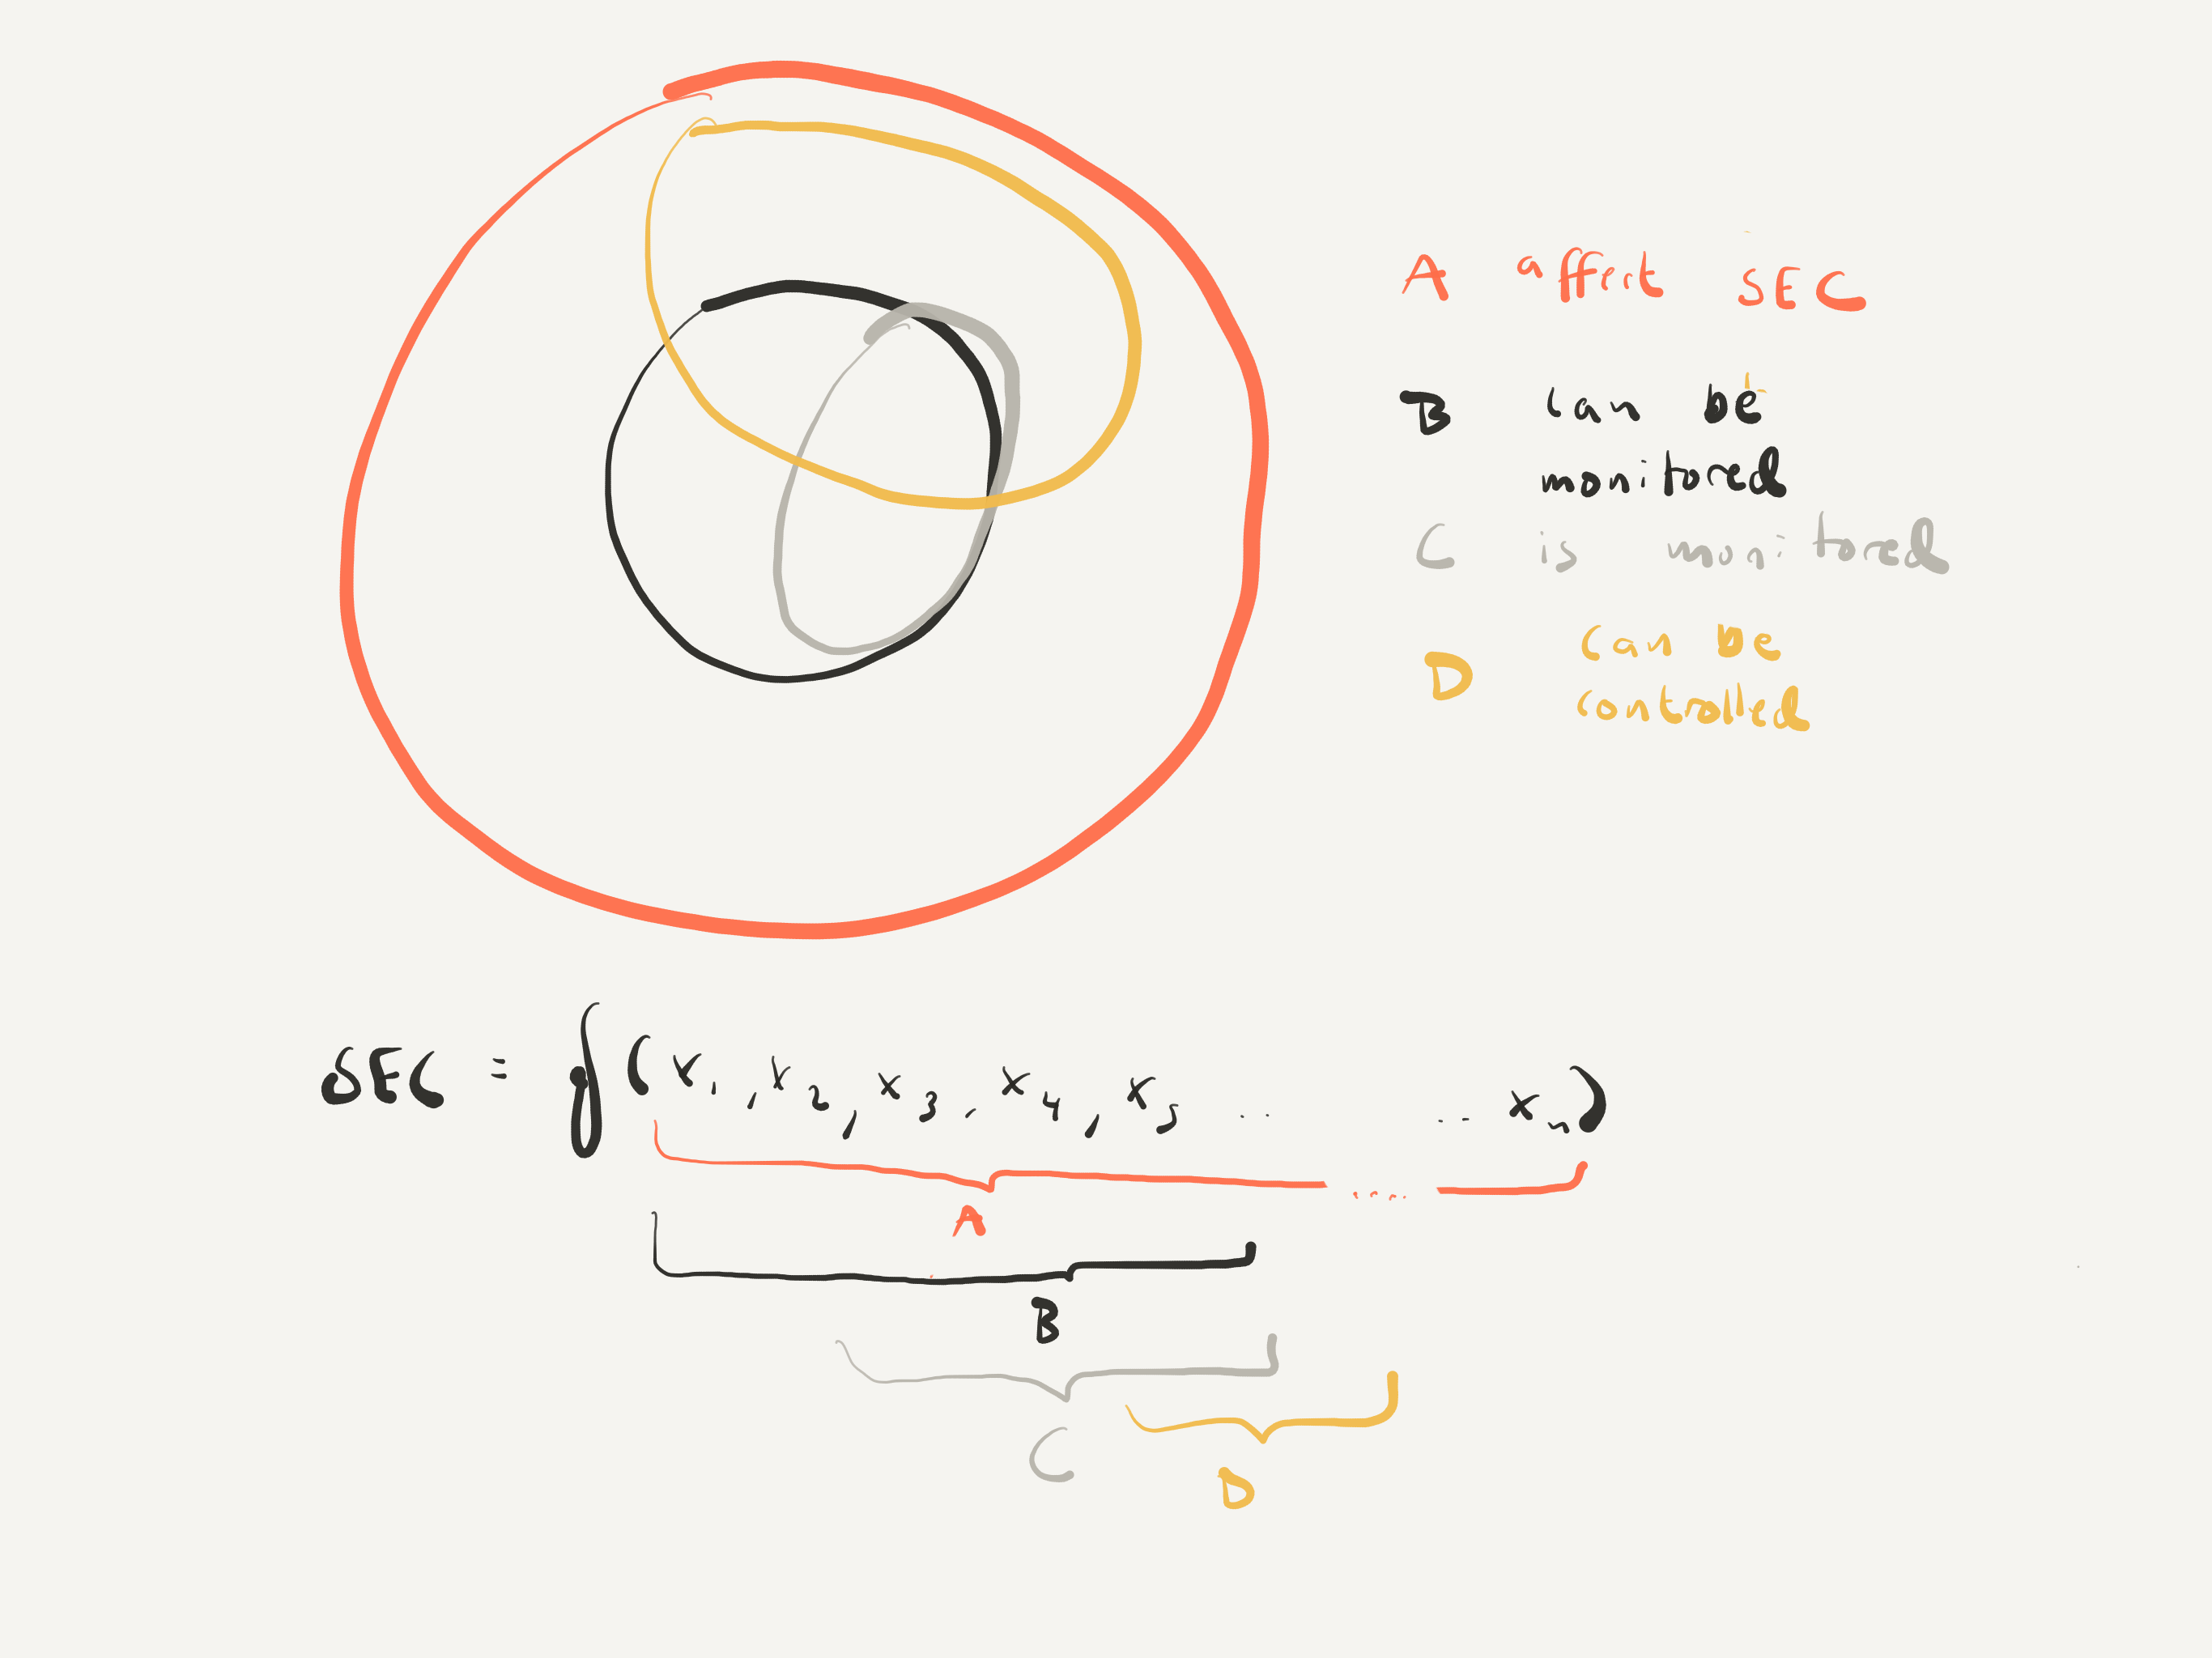 A affect SEC
B can be
monitored
C is monitored
D can be
controlled
SEC = f(x₁, x₂, x₃, x₄, x₅ .. .. xₙ)
....
A
B
C
D